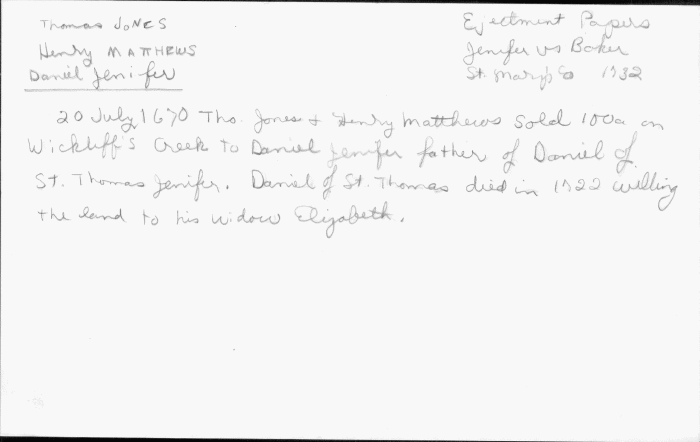 Thomas JONES
Henry MATTHEWS
Daniel Jenifer
Ejectment Papers
Jenifer vs Baker
St. Mary's Co 1732
20 July 1670 Tho. Jones + Henry Matthews sold 100a on
Wickliff's Creek to Daniel Jenifer father of Daniel of
St. Thomas Jenifer. Daniel of St. Thomas died in 1722 willing
the land to his widow Elizabeth.